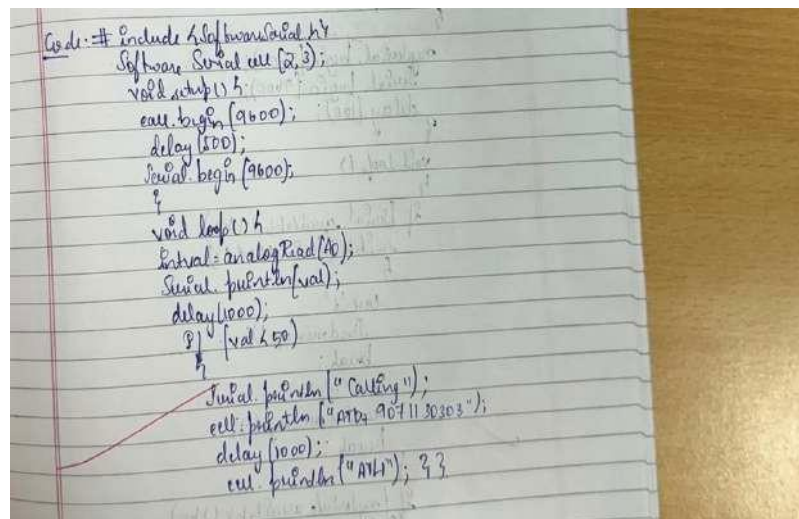 Code:- # include <SoftwareSerial.h>
Software Serial cell (2,3);
void setup() {
cell.begin (9600);
delay (500);
Serial.begin (9600);
}
void loop() {
int val = analogRead(A0);
Serial.println(val);
delay(1000);
if (val < 50)
{
Serial.println ("Calling");
cell.println ("ATD+ 9071130303");
delay (1000);
cell.println ("ATH"); }}